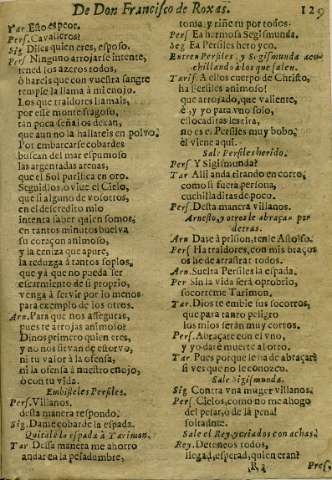 De Don Francisco de Roxas. 129
Tar. Esto es peor.
Pers. Cavalleros?
Sig. Dilesquien eres, esposo.
Pers. Ninguno arrojarse intente,
tened los azeros todos,
ò hareis que con vuestra sangre
temple la llama à mi enojo.
Los que traidores llamais,
por esse monte fragoso,
tan poca señal os dexan,
que aun no la hallareis en polvo.
Por embarcarse cobardes
buscan del mar espumoso
las argentadas arenas,
que el Sol purifica en oro.
Seguidlos, ò vive el Cielo,
que si alguno de vosotros,
en el descredito mio
intenta saber quien somos,
en tantos minutos buelva
su coraçon animoso,
y la ceniza que apure,
la reduzga à tantos soplos,
que yà que no pueda ser
escarmiento de si proprio,
venga à servir por lo menos
para exemplo de los otros.
Arn. Para que nos assegures,
pues te arrojas animoso:
Dinos primero quien eres,
y no nos sirvan de estorvo,
ni tu valor à la ofensa,
ni la ofensa à nuestro enojo,
ò con tu vida.
Embisteles Persiles.
Pers. Villanos,
desta manera respondo.
Sig. Dame cobarde la espada.
Quitale la espada à Tarimon.
Tar Desta manera me ahorro
andar en la pesadumbre,
tonia, y riñe tu por todos.
Pers. Ea hermosa Segismunda.
Seg Ea Persiles heroyco.
Entrese Persiles, y Segismunda acuchillando
à los que salen.
Tarif. A ellos cuerpo de Christo,
ha Persiles animoso!
que arrojado, que valiente,
è, y yo para uno solo,
el
no es el Persiles muy bobo;
èl viene aqui.
Sale Persiles herido.
Pers Y Sigismunda?
Tar Alli anda tirando en corro,
como si fuera persona,
cuchilladitas de poco.
Pers. Desta manera villanos.
Arnesto, y otros le abraçan por
detras.
Arn. Date à prision, tenle Astolfo.
Pers Ha traidores, con mis braços
os he de arrastrar todos.
Arn. Suelta Persiles la espada.
Per Sin la vida serà oprobrio,
socorreme Tarimon.
Tar. Dios te embie sus socorros,
que para tanto peligro
los mios seràn muy cortos.
Pers. Abraçate con el vno,
y yo darè muerte al otro.
Tar. Pues porque le ha de abraçarè
si ves que no le conozco.
Sale Sigismunda.
Sig Contra vna muger villanos.
Pers. Cielos, como no me ahogo
del pesar, ò de la pena!
soltadme.
Sale el Rey, y criados con achas.
Rey. Deteneos todos,
llegad, esperad, quien eran?
R 4 Pres.